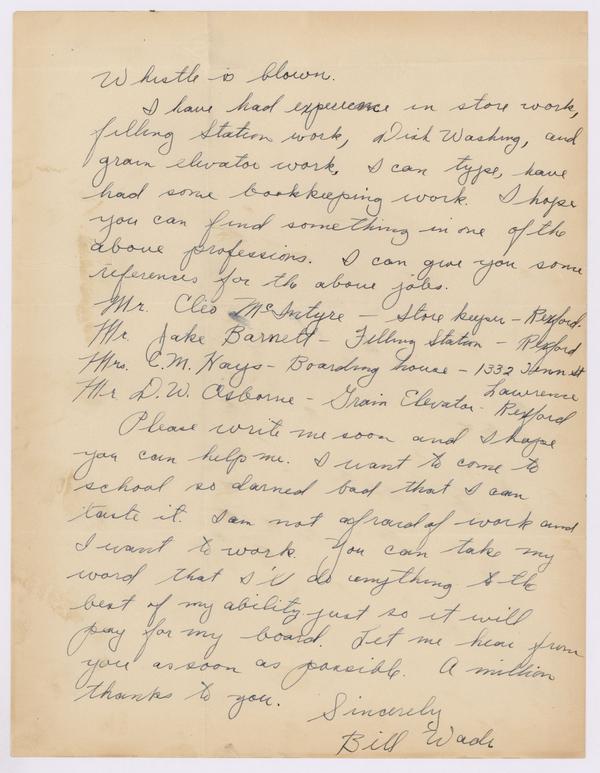 Whistle is blown.
I have had experience in store work,
filling Station work, Dish Washing, and
grain elevator work, I can type, have
had some bookkeeping work. I hope
you can find something in one of the
above professions. I can give you some
references for the above jobs.
Mr. Cleo McIntyre - Store keeper - Rexford.
Mr. Jake Barnett - Filling Station - Rexford
Mrs. C.M. Hays - Boarding house - 1332 Tenn St
Lawrence
Mr D.W. Osborne - Grain Elevator - Rexford
Please write me soon and I hope
you can help me. I want to come to
school so darned bad that I can
taste it. I am not afraid of work and
I want to work. You can take my
word that I'll do anything to the
best of my ability just so it will
pay for my board. Let me hear from
you as soon as possible. A million
thanks to you.
Sincerely
Bill Wade